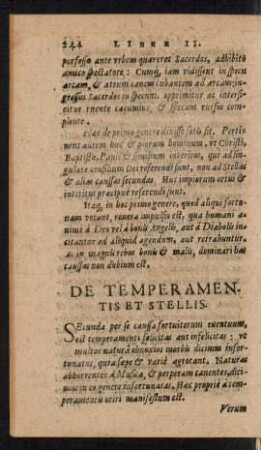 244 LIBER II.
perfosso ante vrbem quæreret Sacerdos, adhibito
amico spectatore: Cumq́, iam vidissent in specu
arcam, & atrum canem cubantem ad arcam; in-
gressus Sacerdos in specum, opprimitur ac interfi-
citur ruente cacumine, & specum rursus com-
plente.
Hæc de primo genere dixisse satis sit. Perti-
nent autem huc & piorum hominum, vt Christi,
Baptistæ, Pauli & similium interitus, qui ad sin-
gulare consilium Dei referendi sunt, non ad Stellas
& alias caussas secundas. Huc impiorum ortus &
interitus præcipuè referendi sunt.
Itaq́, in hoc primo genere, quod aliqui fortu-
nam vocant, reuera impulsus est, quo humani a-
nimi à Deo vel à bonis Angelis, aut à Diabolis in-
citantur ad aliquid agendum, aut retrahuntur.
Ac in magnis rebus bonis & malis, dominari has
caussas non dubium est.
DE TEMPERAMEN-
TIS ET STELLIS.
SEcunda per se caussa fortuitorum euentuum,
est temperamenti felicitas aut infelicitas: vt
multos naturâ obnoxios morbis dicimus infor-
tunatos, quia sæpe & variè ægrotant. Naturas
abhorrentes à Musica, & perperam canentes, di-
cimus in eo genere infortunatas. Hæc propriè à tem-
peramentis oriri manifestum est.
Verum